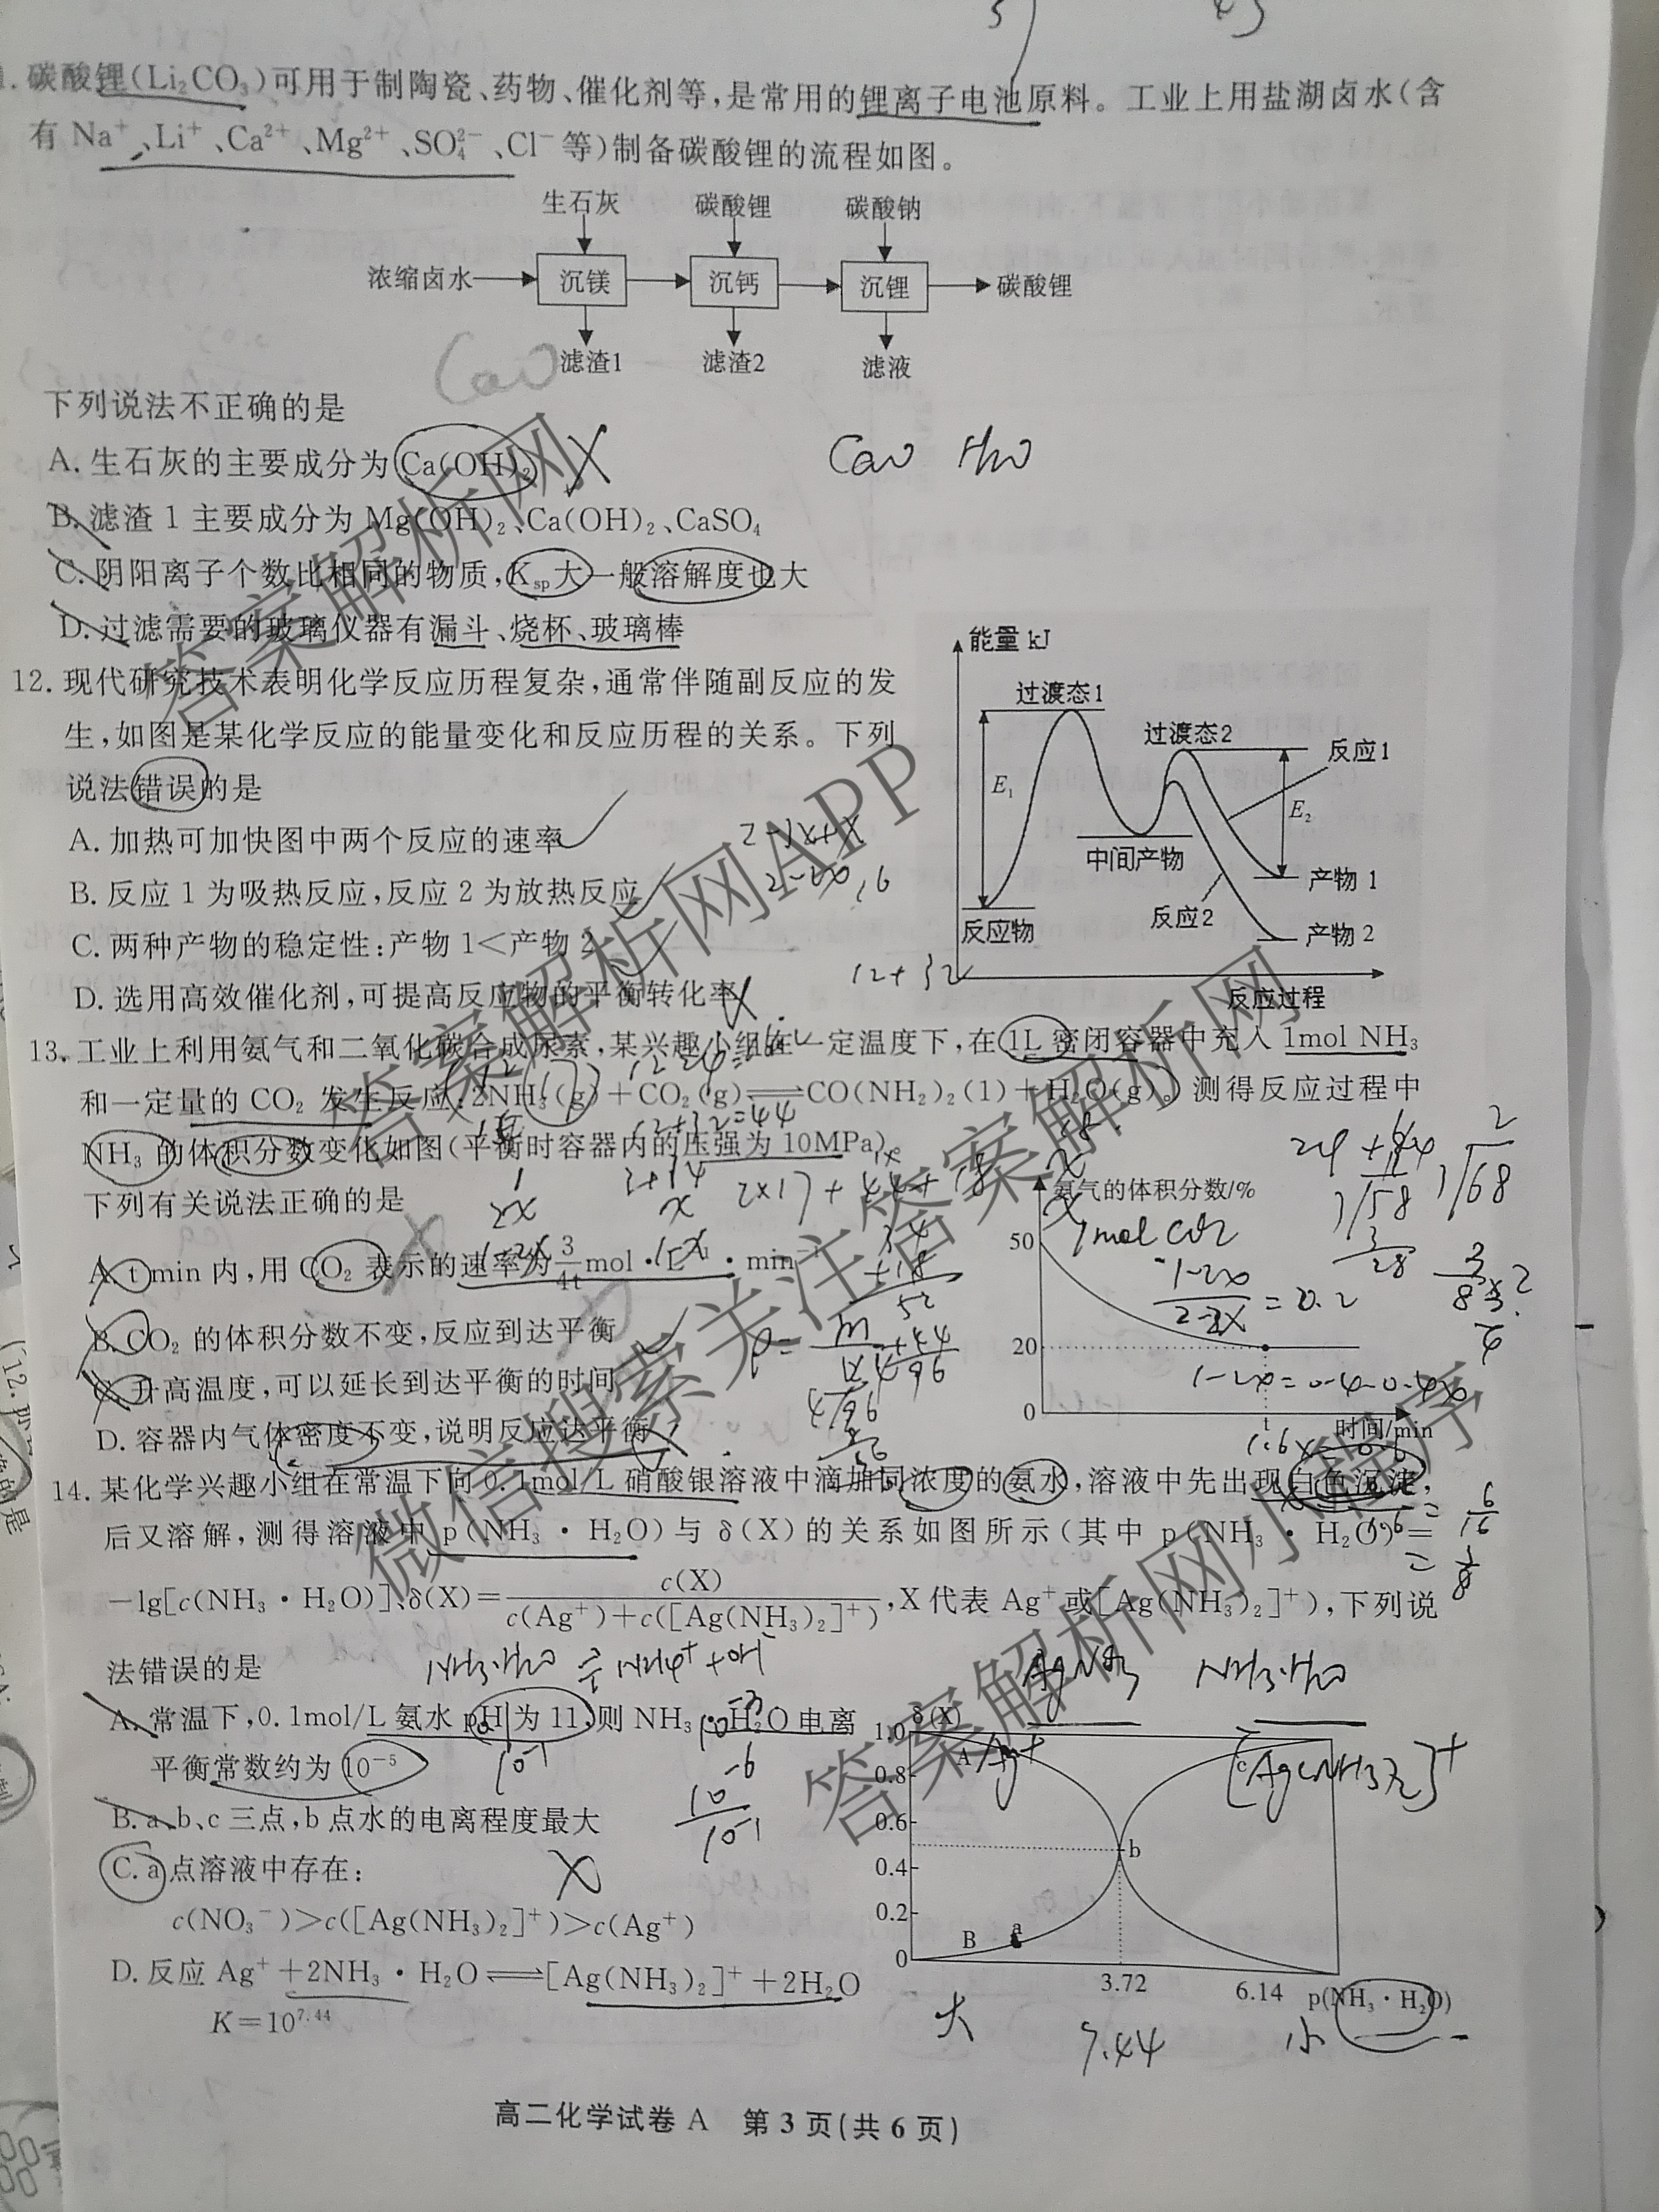 1. 碳酸锂(Li₂CO₃)可用于制陶瓷、药物、催化剂等,是常用的锂离子电池原料。工业上用盐湖卤水(含
有 Na⁺、Li⁺、Ca²⁺、Mg²⁺、SO₄²⁻、Cl⁻等)制备碳酸锂的流程如图。
生石灰 碳酸锂 碳酸钠
浓缩卤水 沉镁 沉钙 沉锂 碳酸锂
滤渣1 滤渣2 滤液
CaO
下列说法不正确的是
A. 生石灰的主要成分为 Ca(OH)₂ X CaO H₂O
B. 滤渣 1 主要成分为 Mg(OH)₂、Ca(OH)₂、CaSO₄
C. 阴阳离子个数比相同的物质,Ksp大一般溶解度也大
D. 过滤需要的玻璃仪器有漏斗、烧杯、玻璃棒
12. 现代研究技术表明化学反应历程复杂,通常伴随副反应的发
生,如图是某化学反应的能量变化和反应历程的关系。下列
说法错误的是
A. 加热可加快图中两个反应的速率
B. 反应 1 为吸热反应,反应 2 为放热反应
C. 两种产物的稳定性:产物 1<产物 2
D. 选用高效催化剂,可提高反应物的平衡转化率
能量 kJ
过渡态1
过渡态2
反应1
E₁
E₂
中间产物
产物 1
反应物
反应2
产物 2
反应过程
12+32
13. 工业上利用氨气和二氧化碳合成尿素,某兴趣小组在一定温度下,在 1L 密闭容器中充入 1mol NH₃
和一定量的 CO₂ 发生反应:2NH₃(g)+CO₂(g)⇌CO(NH₂)₂(l)+H₂O(g)。测得反应过程中
NH₃ 的体积分数变化如图(平衡时容器内的压强为 10MPa)。
下列有关说法正确的是
A. t min 内,用 CO₂ 表示的速率为 3/4t mol·L⁻¹·min⁻¹
B. CO₂ 的体积分数不变,反应到达平衡
C. 升高温度,可以延长到达平衡的时间
D. 容器内气体密度不变,说明反应达平衡
氨气的体积分数/%
50
20
0
t
时间/min
1mol CO₂
1-2x/2-2x = 0.2
1-2x=0.4-0.4x
14. 某化学兴趣小组在常温下向 0.1mol/L 硝酸银溶液中滴加同浓度的氨水,溶液中先出现白色沉淀,
后又溶解,测得溶液中 p(NH₃·H₂O)与 δ(X)的关系如图所示(其中 p(NH₃·H₂O)=
-lg[c(NH₃·H₂O)]、δ(X)=c(X)/c(Ag⁺)+c([Ag(NH₃)₂]⁺),X 代表 Ag⁺或[Ag(NH₃)₂]⁺),下列说
法错误的是
NH₃·H₂O ⇌ NH₄⁺+OH⁻ AgNO₃ NH₃·H₂O
A. 常温下,0.1mol/L 氨水 pH 为 11,则 NH₃·H₂O 电离
平衡常数约为 10⁻⁵
B. a、b、c 三点,b 点水的电离程度最大
C. a 点溶液中存在: X
c(NO₃⁻)>c([Ag(NH₃)₂]⁺)>c(Ag⁺)
D. 反应 Ag⁺+2NH₃·H₂O⇌[Ag(NH₃)₂]⁺+2H₂O
K=10⁷·⁴⁴
δ(X)
1.0
0.8
0.6
0.4
0.2
0
A Ag⁺
c [Ag(NH₃)₂]⁺
b
B a
3.72 6.14 p(NH₃·H₂O)
大 7.44 小
高二化学试卷 A 第 3 页(共 6 页)
答案解析网
答案解析网APP
微信搜索关注答案解析网
答案解析网小程序